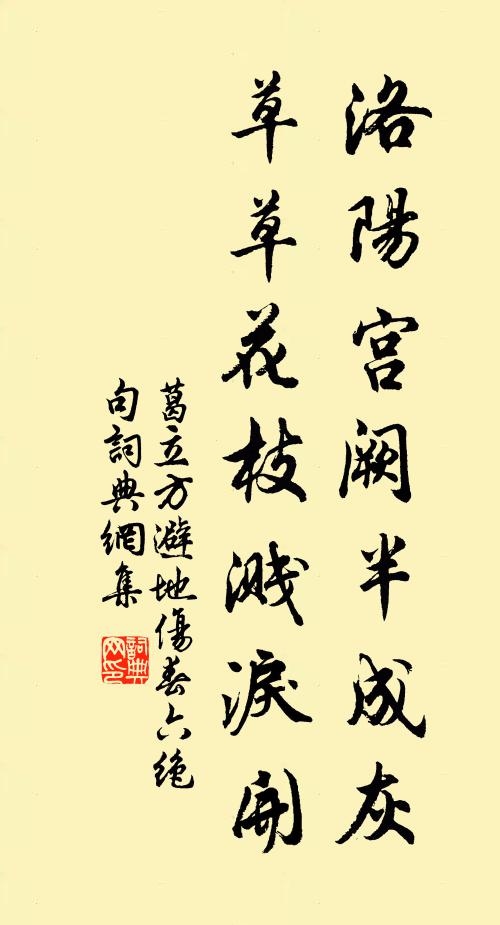 洛陽宫阙半成灰
草草花枝溅淚開
葛立方避地傷春六绝
句詞典網集
詞典网印